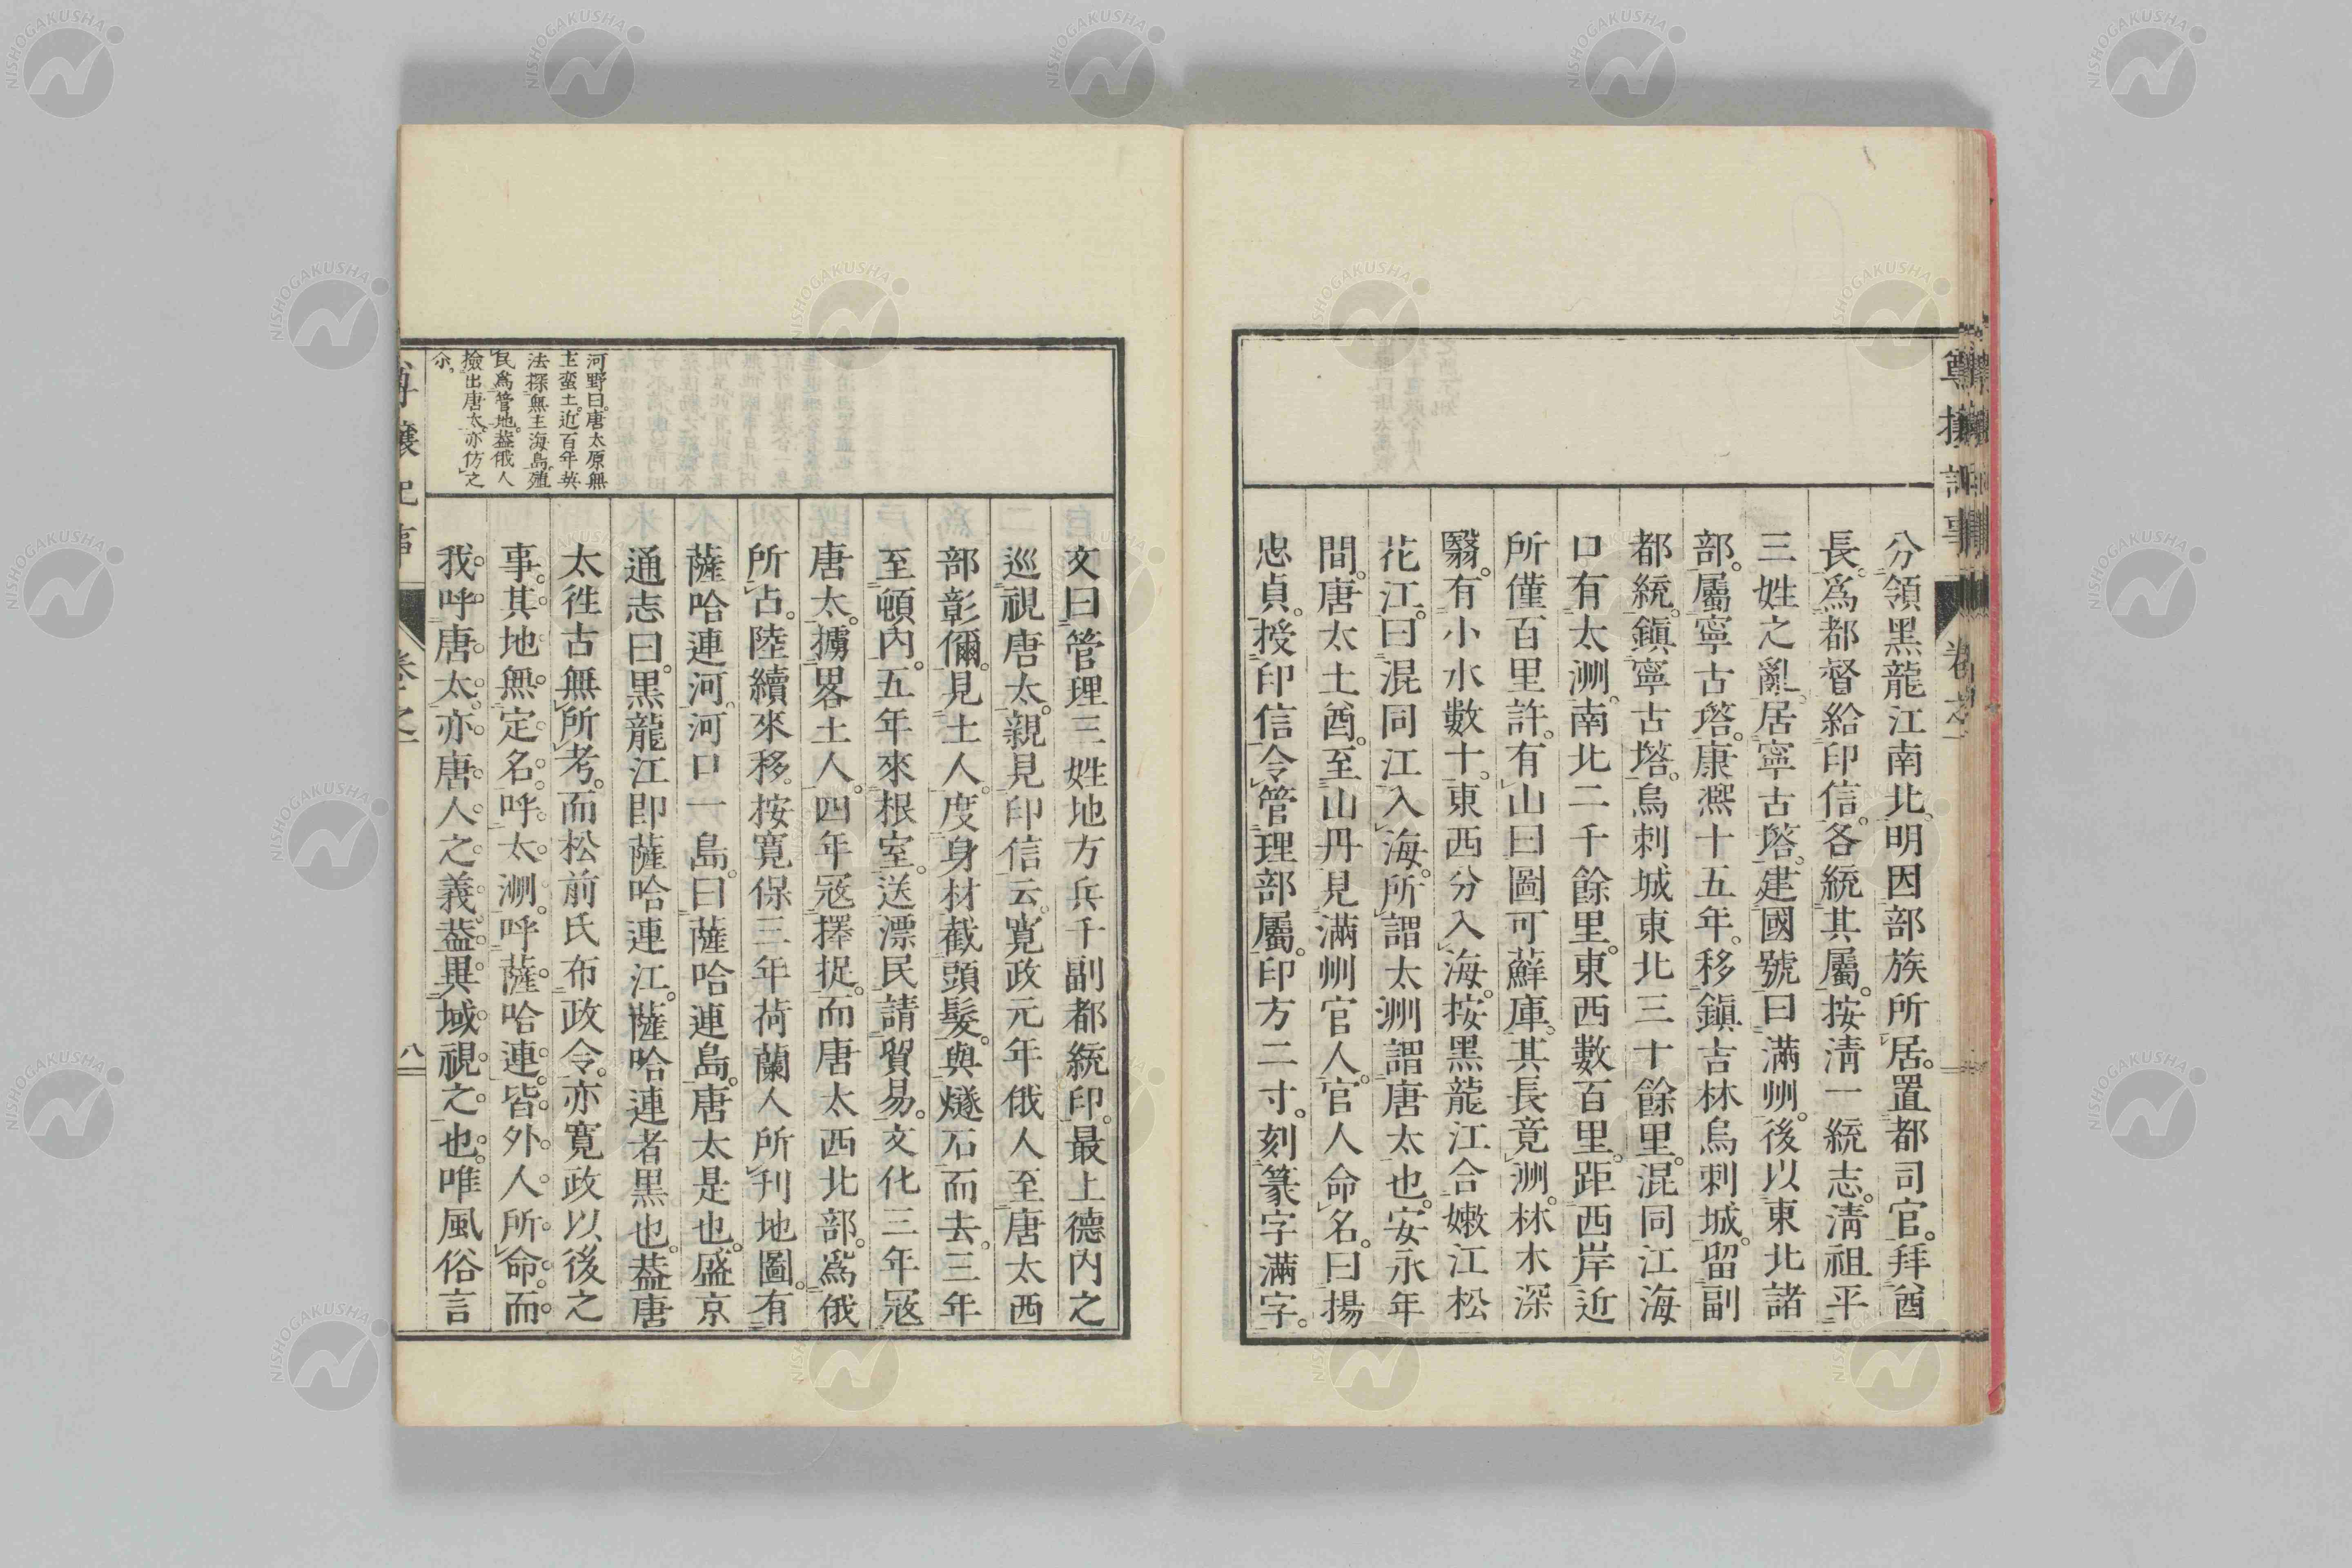 分領黑龍江南北。明因部族所居。置都司官。拜酋
長。爲都督給印信。各統其屬。按淸一統志。淸祖平
三姓之亂。居寧古塔。建國號曰滿洲。後以東北諸
部。屬寧古塔。康熈十五年。移鎭吉林烏剌城。留副
都統。鎭寧古塔。烏剌城東北三十餘里。混同江海
口有太洲。南北二千餘里。東西數百里。距西岸近
所僅百里許。有山曰圖可蘇庫。其長竟洲。林木深
翳。有小水數十。東西分入海。按黑龍江合嫩江松
花江。曰混同江入海。所謂太洲謂唐太也。安永年
間。唐太土酋。至山丹見滿州官人。官人命名。曰揚
忠貞。授印信令管理部屬。印方二寸。刻篆字滿字。
文曰管理三姓地方兵千副都統印。最上德内之
巡視唐太。親見印信云。寬政元年俄人至唐太西
部彰彌。見土人。度身材截頭髮。與燧石而去。三年
至頓内。五年來根室。送漂民請貿易。文化三年冦
唐太。擄畧土人。四年冦擇捉。而唐太西北部。爲俄
所占。陸續來移。按寬保三年荷蘭人所刊地圖。有
薩哈連河。河口一島。曰薩哈連島。唐太是也。盛京
通志曰。黑龍江卽薩哈連江。薩哈連者黑也。葢唐
太徃古無所考。而松前氏布政令。亦寬政以後之
事。其地無定名。呼太洲。呼薩哈連。皆外人所命。而
我呼唐太。亦唐人之義葢異域視之也。唯風俗言
河野曰。唐太原無
主蛮土。近百年英
法探無主海島。殖
民爲管地。葢俄人
撿出唐太。亦仿之
尒。
卷之一
八
NISHOGAKUSHA